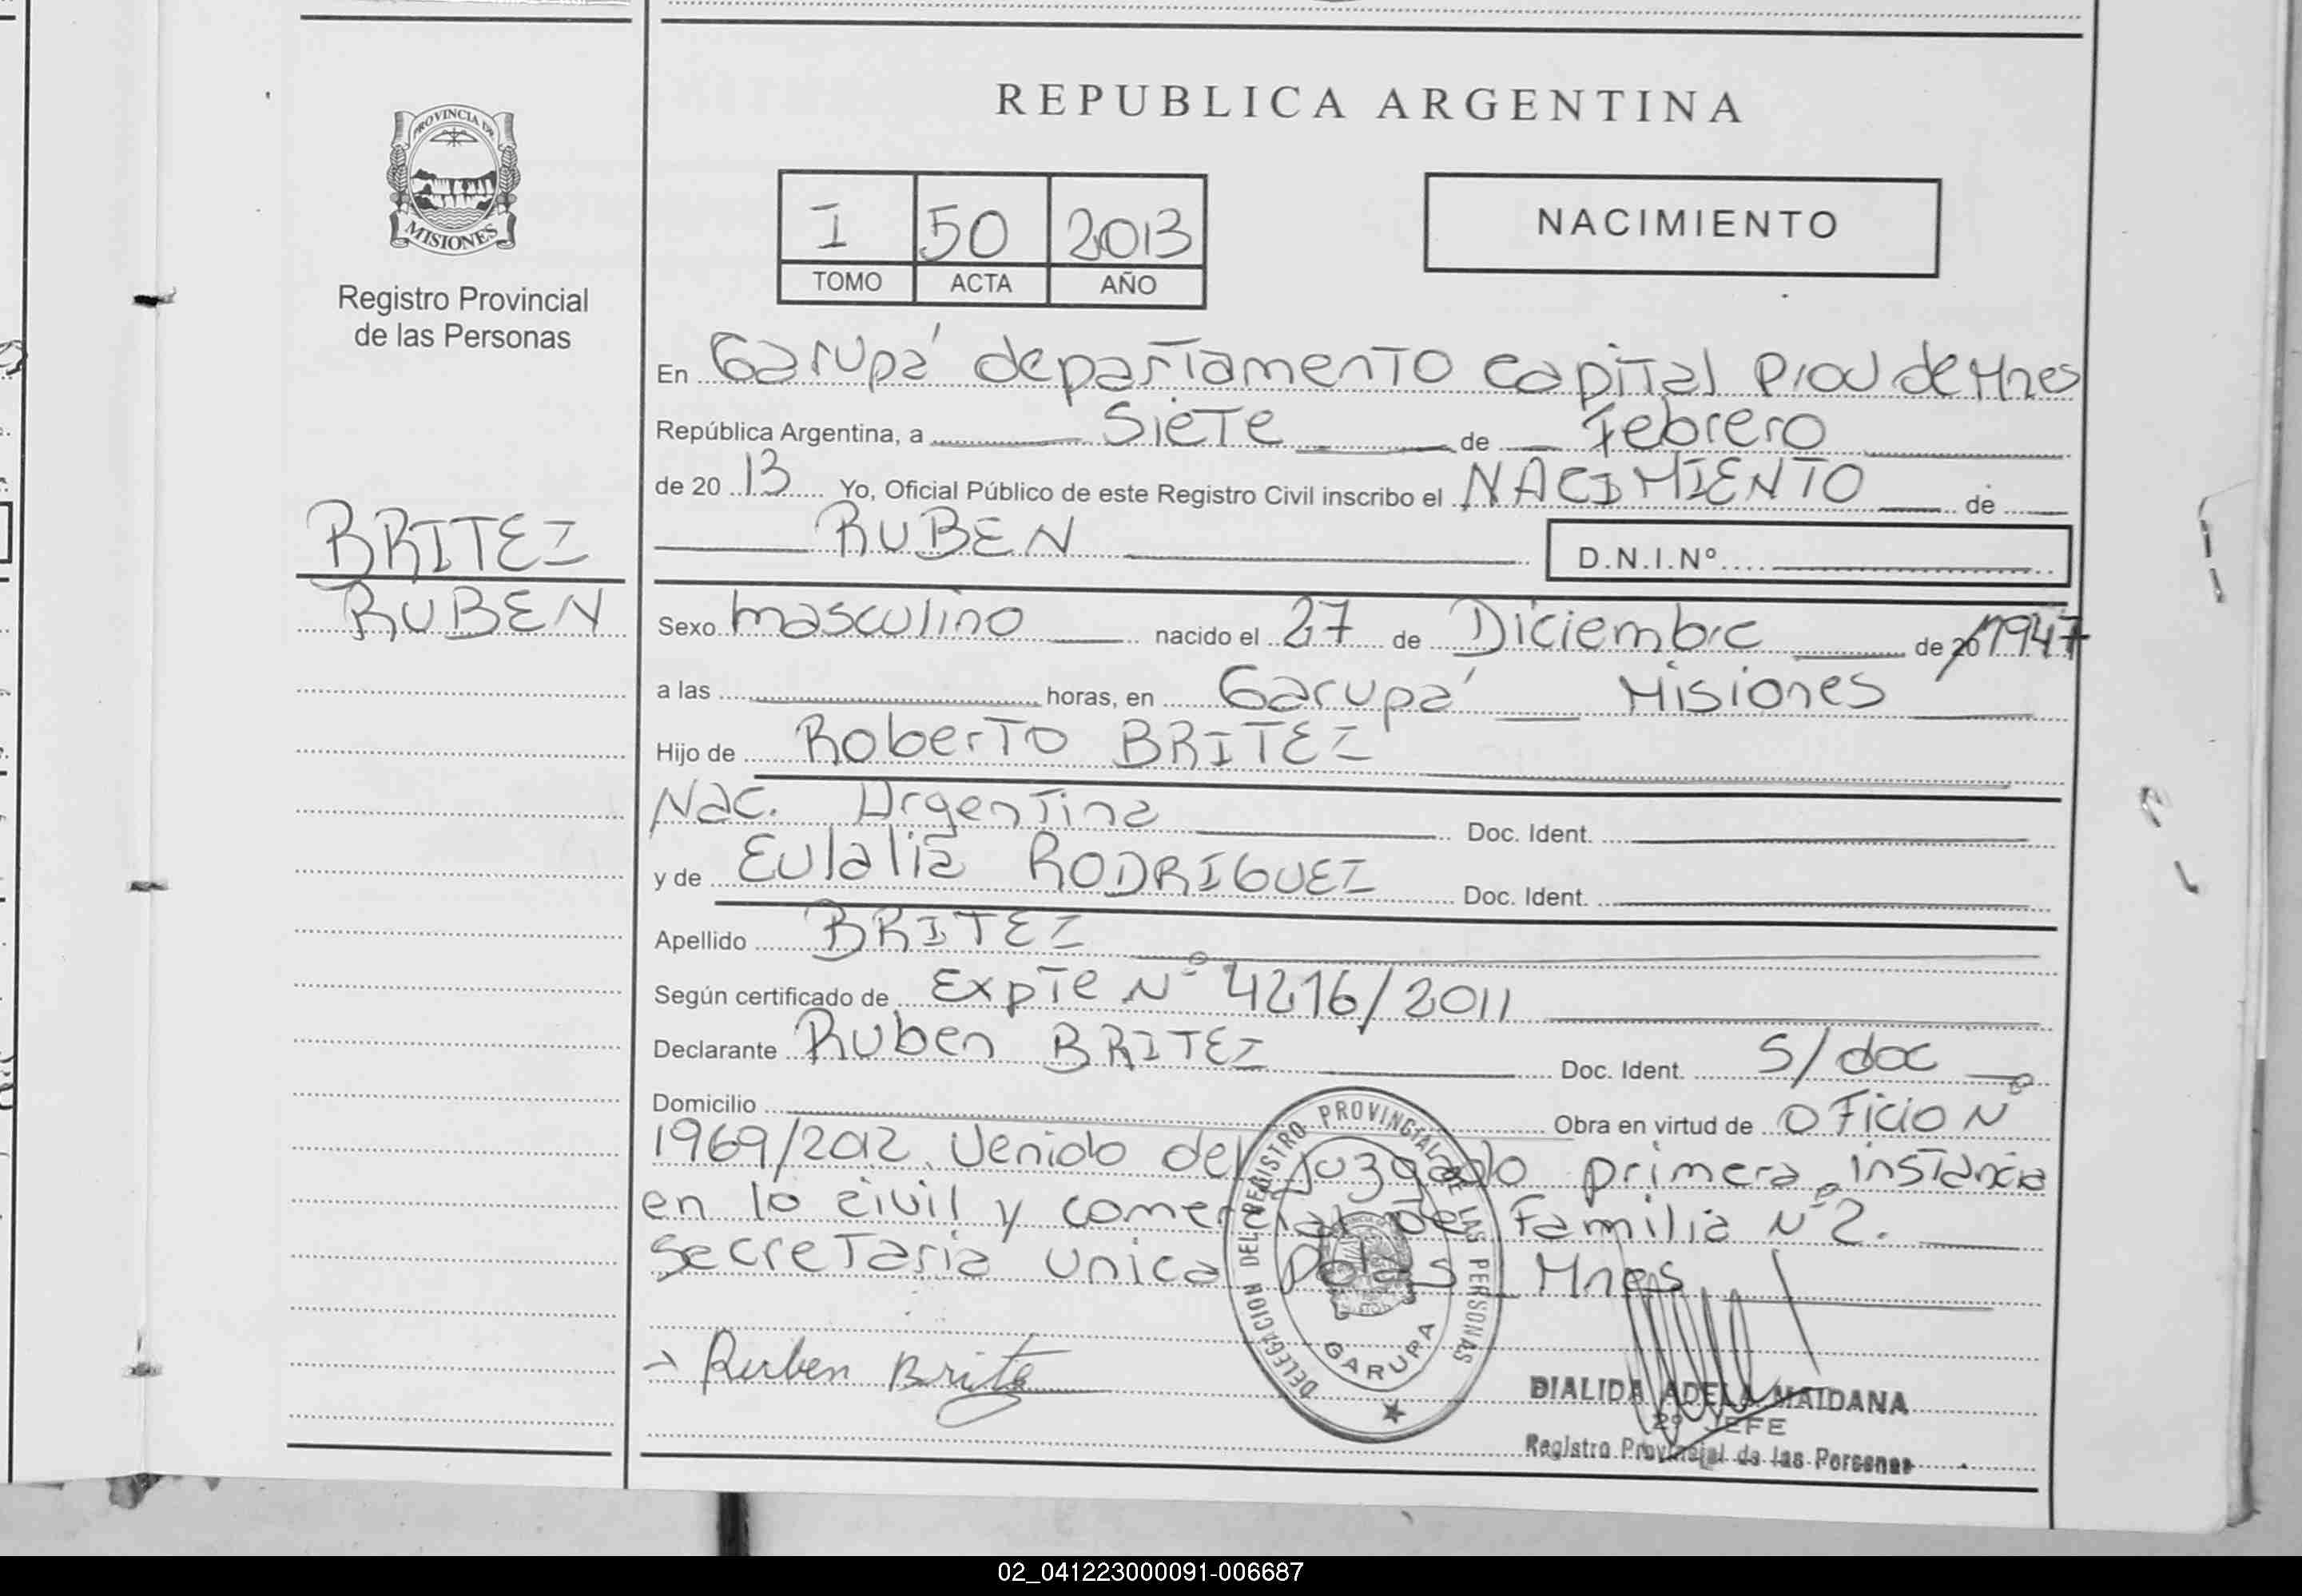 REPUBLICA ARGENTINA
PROVINCIA DE
MISIONES
Registro Provincial
de las Personas
BRITEZ
RUBEN
I 50 2013
TOMO ACTA AÑO
NACIMIENTO
En Garupá departamento capital Prov de Mnes
República Argentina, a siete de Febrero
de 20 13 Yo, Oficial Público de este Registro Civil inscribo el NACIMIENTO de
RUBEN D.N.I.Nº
Sexo masculino nacido el 27 de Diciembre de 20 1947
a las horas, en Garupá Misiones
Hijo de Roberto BRITEZ
Nac. Argentina Doc. Ident.
y de Eulalia RODRIGUEZ Doc. Ident.
Apellido BRITEZ
Según certificado de Expte Nº 4216/2011
Declarante Ruben BRITEZ Doc. Ident. S/doc
Domicilio Obra en virtud de OFicio Nº
1969/2012. Venido del Juzgado primera instancia
en lo civil y comercial de Familia Nº 2.
secretaria unica Pdas Mnes
Ruben Brite
DELEGACION DEL REGISTRO PROVINCIAL DE LAS PERSONAS
GARUPA
DIALIDA ADELA MAIDANA
2º JEFE
Registro Provincial de las Personas
02_041223000091-006687